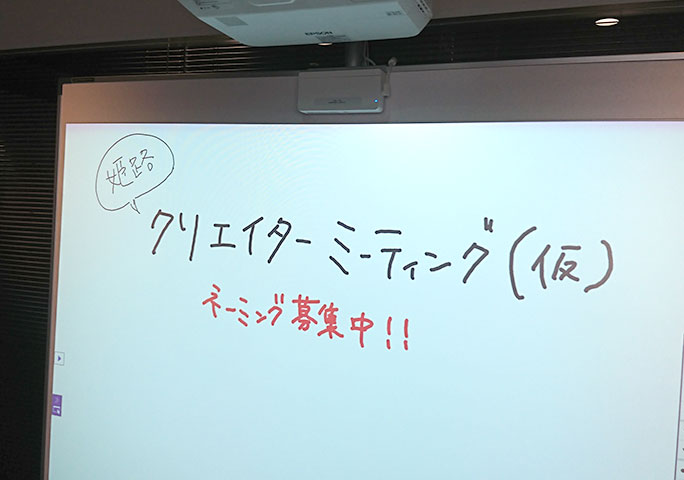 EPSON
姫路
クリエイターミーティング(仮)
ネーミング募集中!!